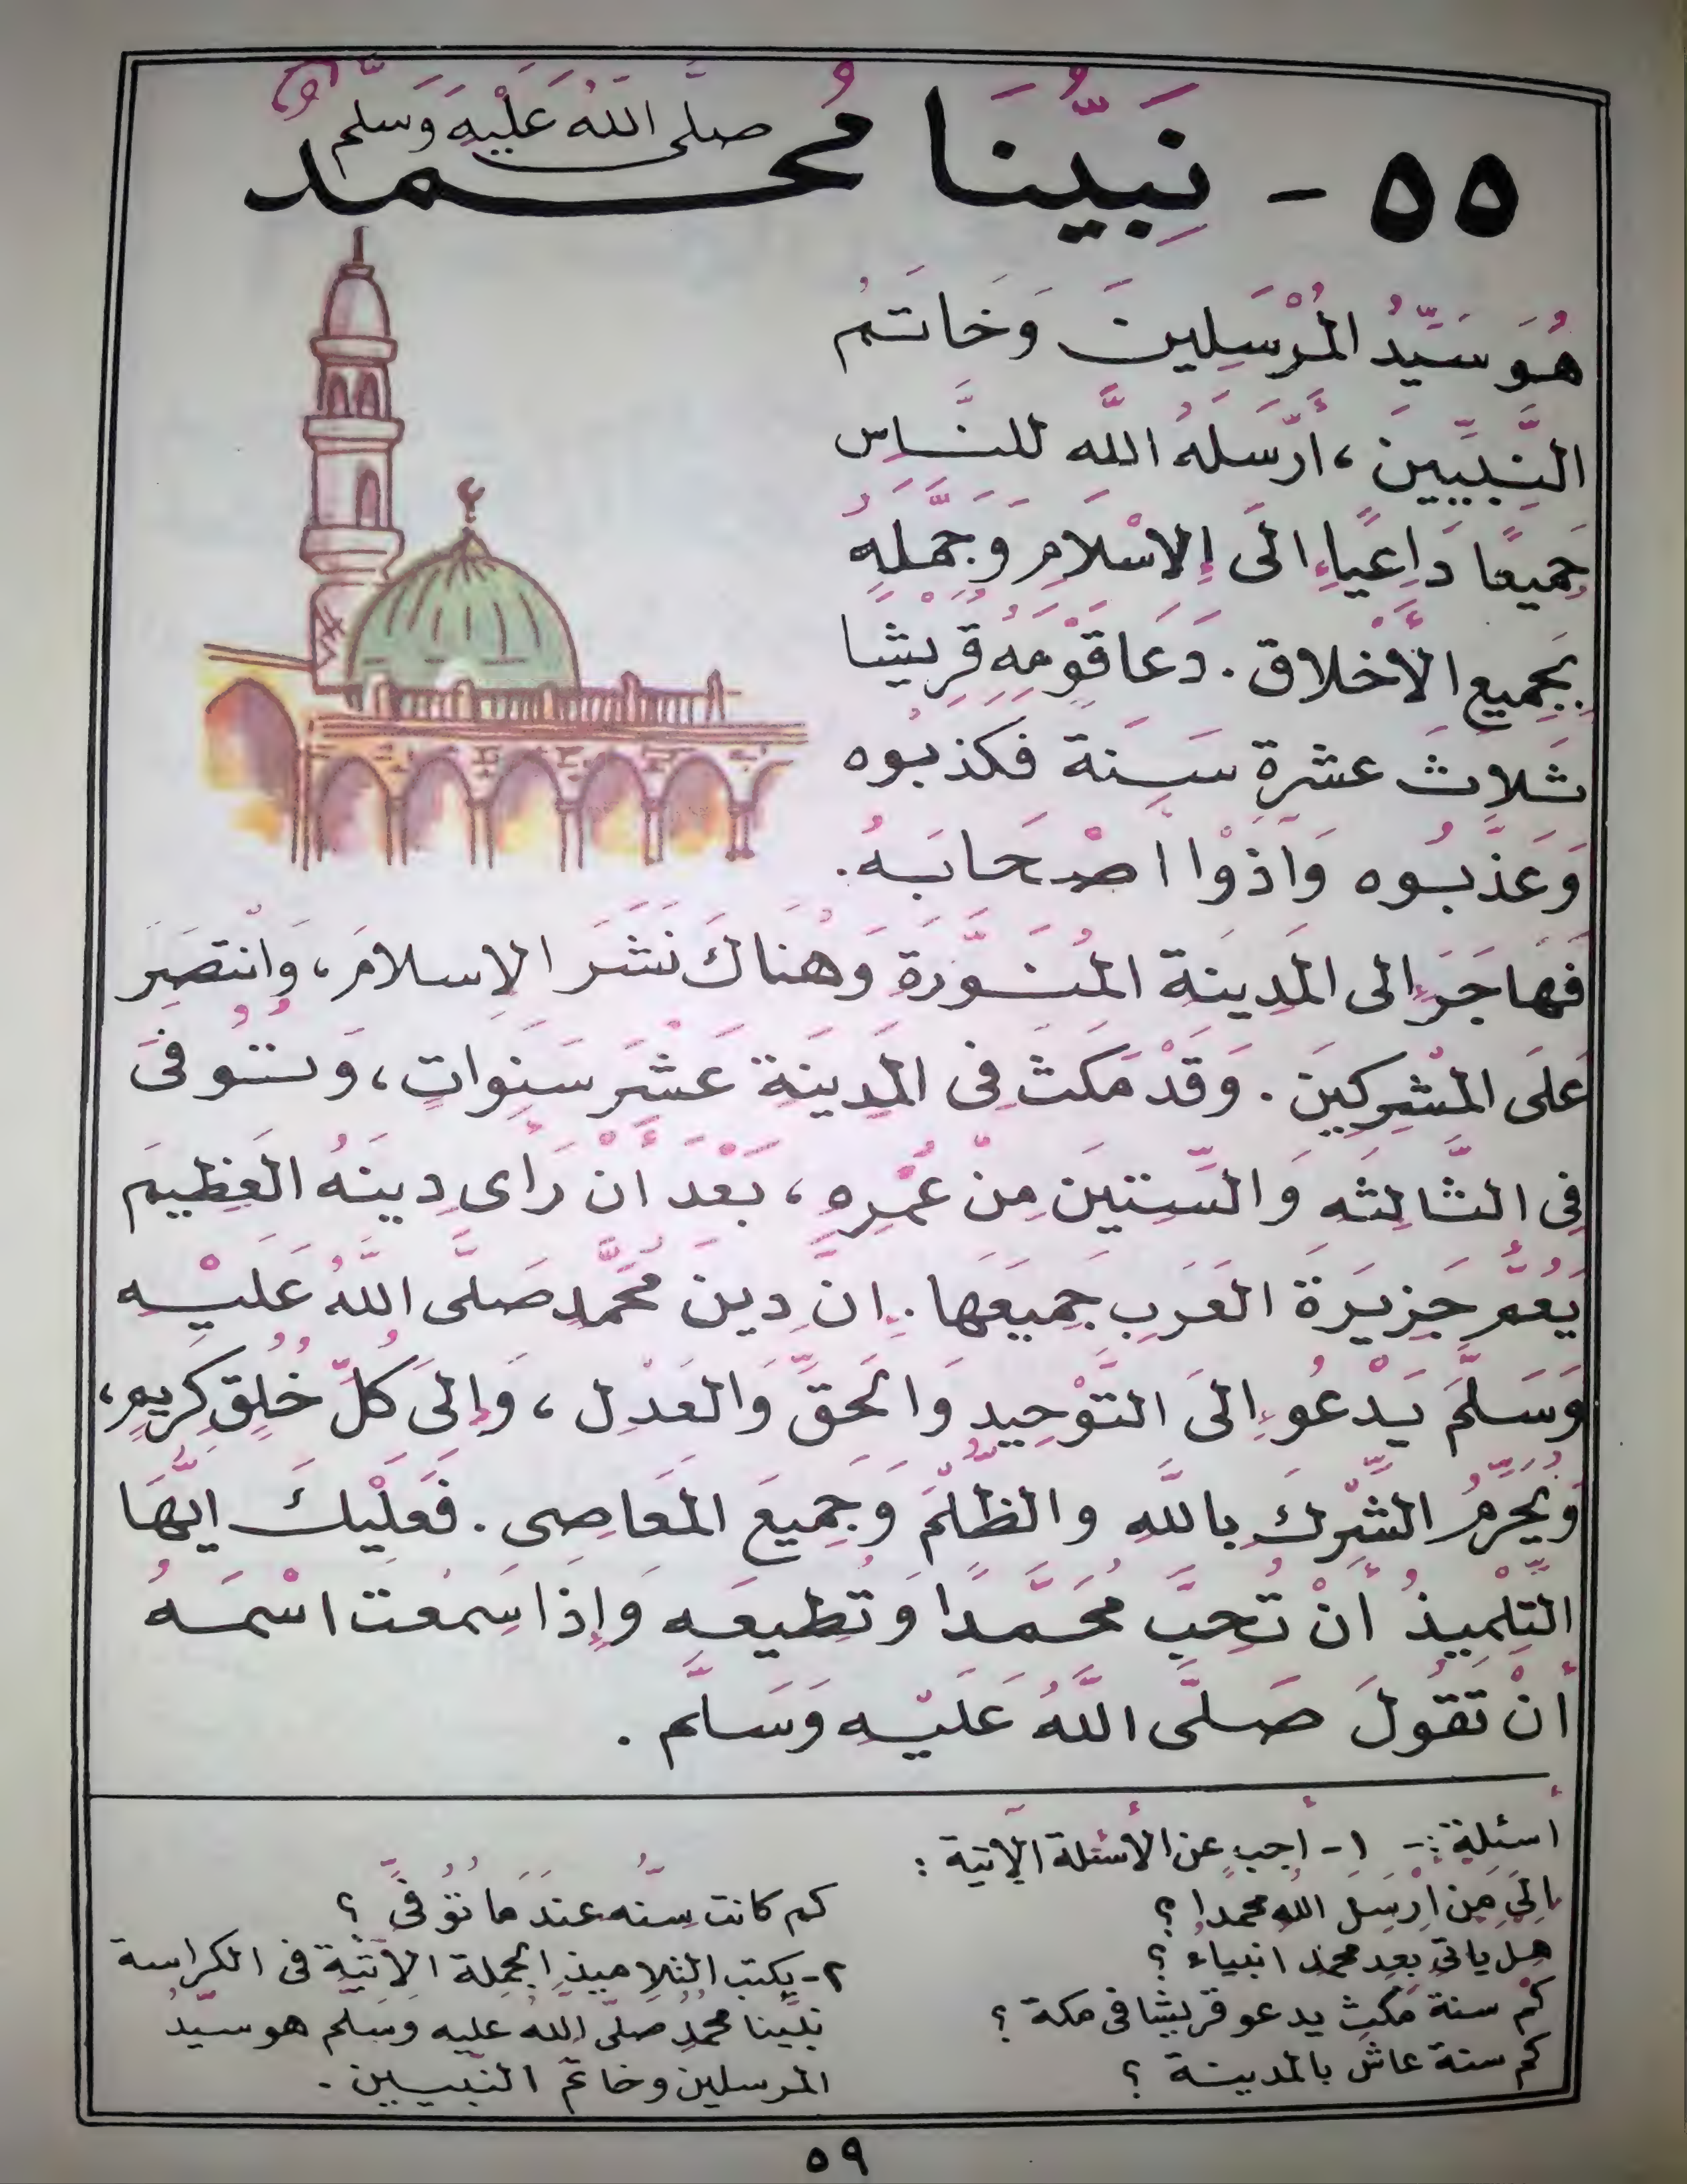 ٥٥ - نَبِيُّنَا مُحَمَّدٌ صَلَّى اللهُ عَلَيْهِ وَسَلَّمَ
هُوَ سَيِّدُ المُرْسَلِينَ وَخَاتَمُ
النَّبِيِّينَ، أَرْسَلَهُ اللَّه للنَّاس
جَمِيعًا دَاعِيًا إِلَى الإِسْلَامِ وَجَمَّلَهُ
بِجَمِيعِ الأَخْلاق. دَعَا قَوْمَهُ قُرَيْشًا
ثَلاثَ عَشْرَةَ سَنَة فَكَذبُوه
وَعَذَّبُوه وَآذَوْا اصْحَابَهُ.
فَهَاجَرَ إِلى المَدِينَةِ المُنَوَّرَةِ وَهُنَاكَ نَشَرَ الإِسلامَ، وَانْتَصَرَ
عَلَى المشْرِكِينَ. وَقَدْ مَكَثَ فِى المَدِينَةِ عَشْرَ سَنَوَاتٍ، وَتُوُفىَ
فِى الثَّالِثَه وَالسِّتينَ مِنْ عُمْرِهِ، بَعْدَ أَنْ رَأَى دِينَهُ العَظِيمَ
يَعُمُّ جَزِيرَةَ العَرَبِ جَمِيعَهَا. إِنَّ دِينَ مُحَمَّدٍ صَلَّى اللَّهُ عَلَيْهِ
وَسَلَّمَ يَدْعُو إِلَى التَّوْحِيدِ وَالحَقِّ وَالعَدْلِ، وَإِلَى كُلِّ خُلُقٍ كَرِيمٍ،
وَيُحَرِّمُ الشِّرْكَ بِاللَّهِ والظُّلْمَ وَجَمِيعَ المَعَاصِى. فَعَلَيْكَ ايُّهَا
التِّلْمِيذُ أَنْ تُحِبَّ مُحَمَّدًا وَتُطِيعَه وَإِذَا سَمِعْتَ اسْمَهُ
أَنْ تَقُولَ صَلَّى اللَّهُ عَلَيْهِ وَسَلَّم.
أسئلة :- ١- أجب عن الأسئلة الآتية :
إِلَى مَن ارْسَلَ اللهُ محمدا ؟
هل ياتى بعد محمد انبياء ؟
كم سنة مَكَثَ يدعو قريشا فى مكة ؟
كم سنة عاش بالمدينة ؟
كم كانت سنُّه عندَ ما تُوُفىَّ ؟
٢- يكتب التلاميذ الجملة الآتية فى الكراسة
نبيّنا محمد صلّى الله عليه وسلم هو سيّدُ
المرسلين وخاتم النبيين.
٥٩